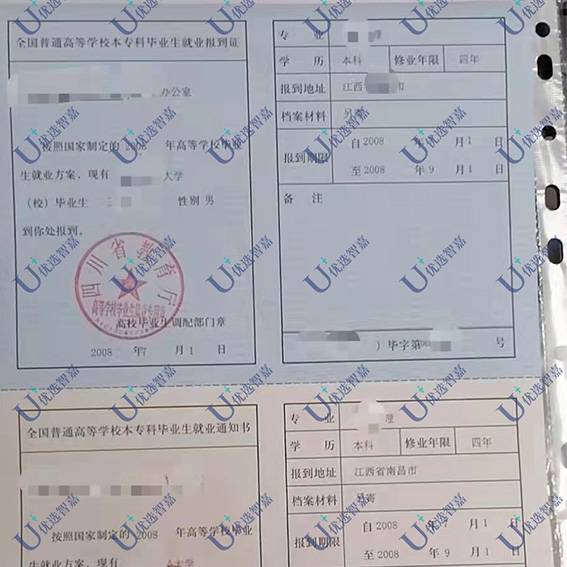 全国普通高等学校本专科毕业生就业报到证
办公室
按照国家制定的 2008 年高等学校毕业
生就业方案，现有 大学
（校）毕业生 性别 男
到你处报到。
四川省教育厅
高等学校毕业生就业专用章
高校毕业生调配部门章
2008 年7 月1 日
专 业 理
学 历 本科 修业年限 四年
报到地址 江西 市
档案材料 另寄
报到期限 自 2008 年 月1 日
至 2008 年 9 月1 日
备 注
）毕字第 号
全国普通高等学校本专科毕业生就业通知书
按照国家制定的 2008 年高等学校毕业
生就业方案，现有 大学
专 业 理
学 历 本科 修业年限 四年
报到地址 江西省南昌市
档案材料 另寄
报到期限 自 2008 年 月1 日
至 2008 年 9 月1 日
U+优选智嘉